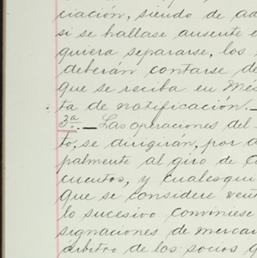 ciación, siendo de ad
si se hallase ausente e
quiera separarse, los
deberán contarse de
que se reciba en Méx
ta de notificación.—
3ª.— Las operaciones del
to, se dirigirán, por a
palmente al giro de c
cuentos, y cualesqui
que se considere
lo sucesivo conviniese
signaciones de merca
árbitro de los socios q